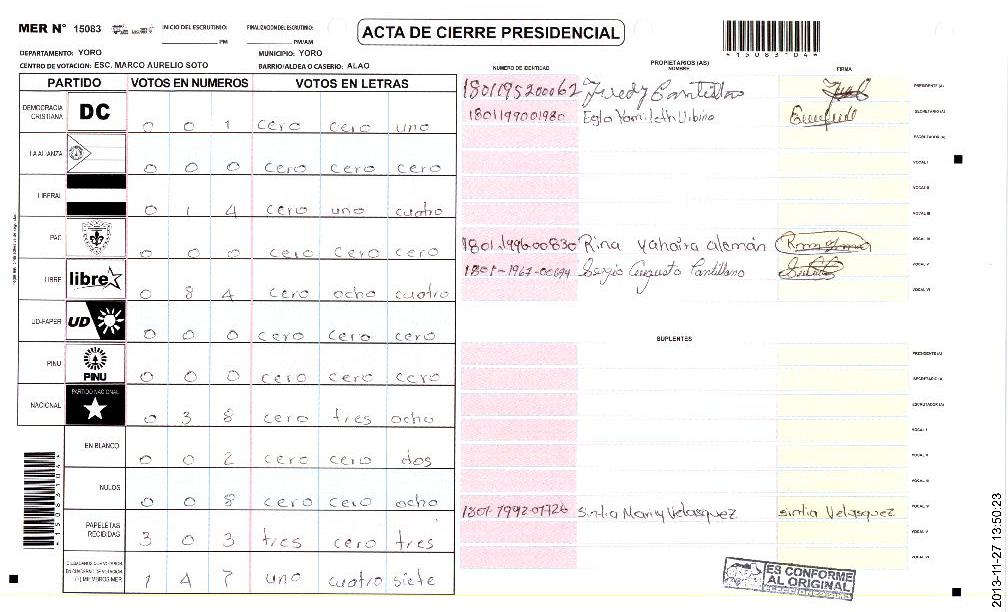 MER N° 15083
INICIO DEL ESCRUTINIO:
PM
FINALIZACION DEL ESCRUTINIO:
PM/AM
ACTA DE CIERRE PRESIDENCIAL
4150831044
DEPARTAMENTO: YORO
MUNICIPIO: YORO
CENTRO DE VOTACION: ESC. MARCO AURELIO SOTO
BARRIO/ALDEA O CASERIO: ALAO
PARTIDO VOTOS EN NUMEROS VOTOS EN LETRAS
DEMOCRACIA CRISTIANA DC 0 0 1 cero cero uno
LA ALIANZA 0 0 0 cero cero cero
LIBERAL 0 1 4 cero uno cuatro
PAC 0 0 0 cero cero cero
LIBRE libre 0 8 4 cero ocho cuatro
UD-FAPER UD 0 0 0 cero cero cero
PINU PINU 0 0 0 cero cero cero
NACIONAL PARTIDO NACIONAL 0 3 8 cero tres ocho
EN BLANCO 0 0 2 cero cero dos
NULOS 0 0 8 cero cero ocho
PAPELETAS RECIBIDAS 3 0 3 tres cero tres
1 4 7 uno cuatro siete
PROPIETARIOS (AS)
NUMERO DE IDENTIDAD NOMBRE FIRMA
1801195200062 Fredy Cantillano PRESIDENTE (A)
1801199001980 Egla Yamileth Urbina SECRETARIO (A)
ESCRUTADOR (A)
VOCAL I
VOCAL II
VOCAL III
1801-1996-00830 Rina Yahaira Alemán VOCAL IV
1801-1967-00694 Sergio Augusto Cantillano VOCAL V
VOCAL VI
SUPLENTES
PRESIDENTE (A)
SECRETARIO (A)
ESCRUTADOR (A)
VOCAL I
VOCAL II
VOCAL III
1801-1992-01726 Sintia Nancy Velasquez sintia Velasquez VOCAL IV
VOCAL V
VOCAL VI
ES CONFORME
AL ORIGINAL
2013-11-27 13:50:23